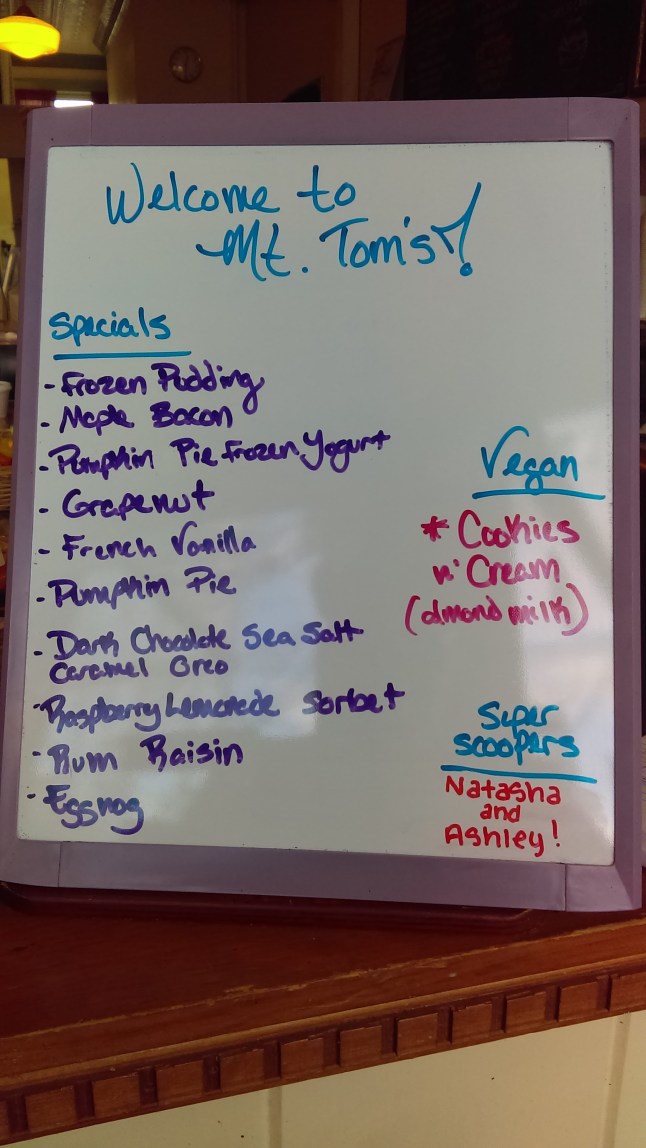 Welcome to
Mt. Tom's!
Specials
- Frozen Pudding
- Maple Bacon
- Pumpkin Pie Frozen Yogurt
- Grapenut
- French Vanilla
- Pumpkin Pie
- Dark Chocolate Sea Salt
Caramel Oreo
- Raspberry Lemonade Sorbet
- Rum Raisin
- Eggnog
Vegan
* Cookies
n' Cream
(almond milk)
Super
Scoopers
Natasha
and
Ashley!